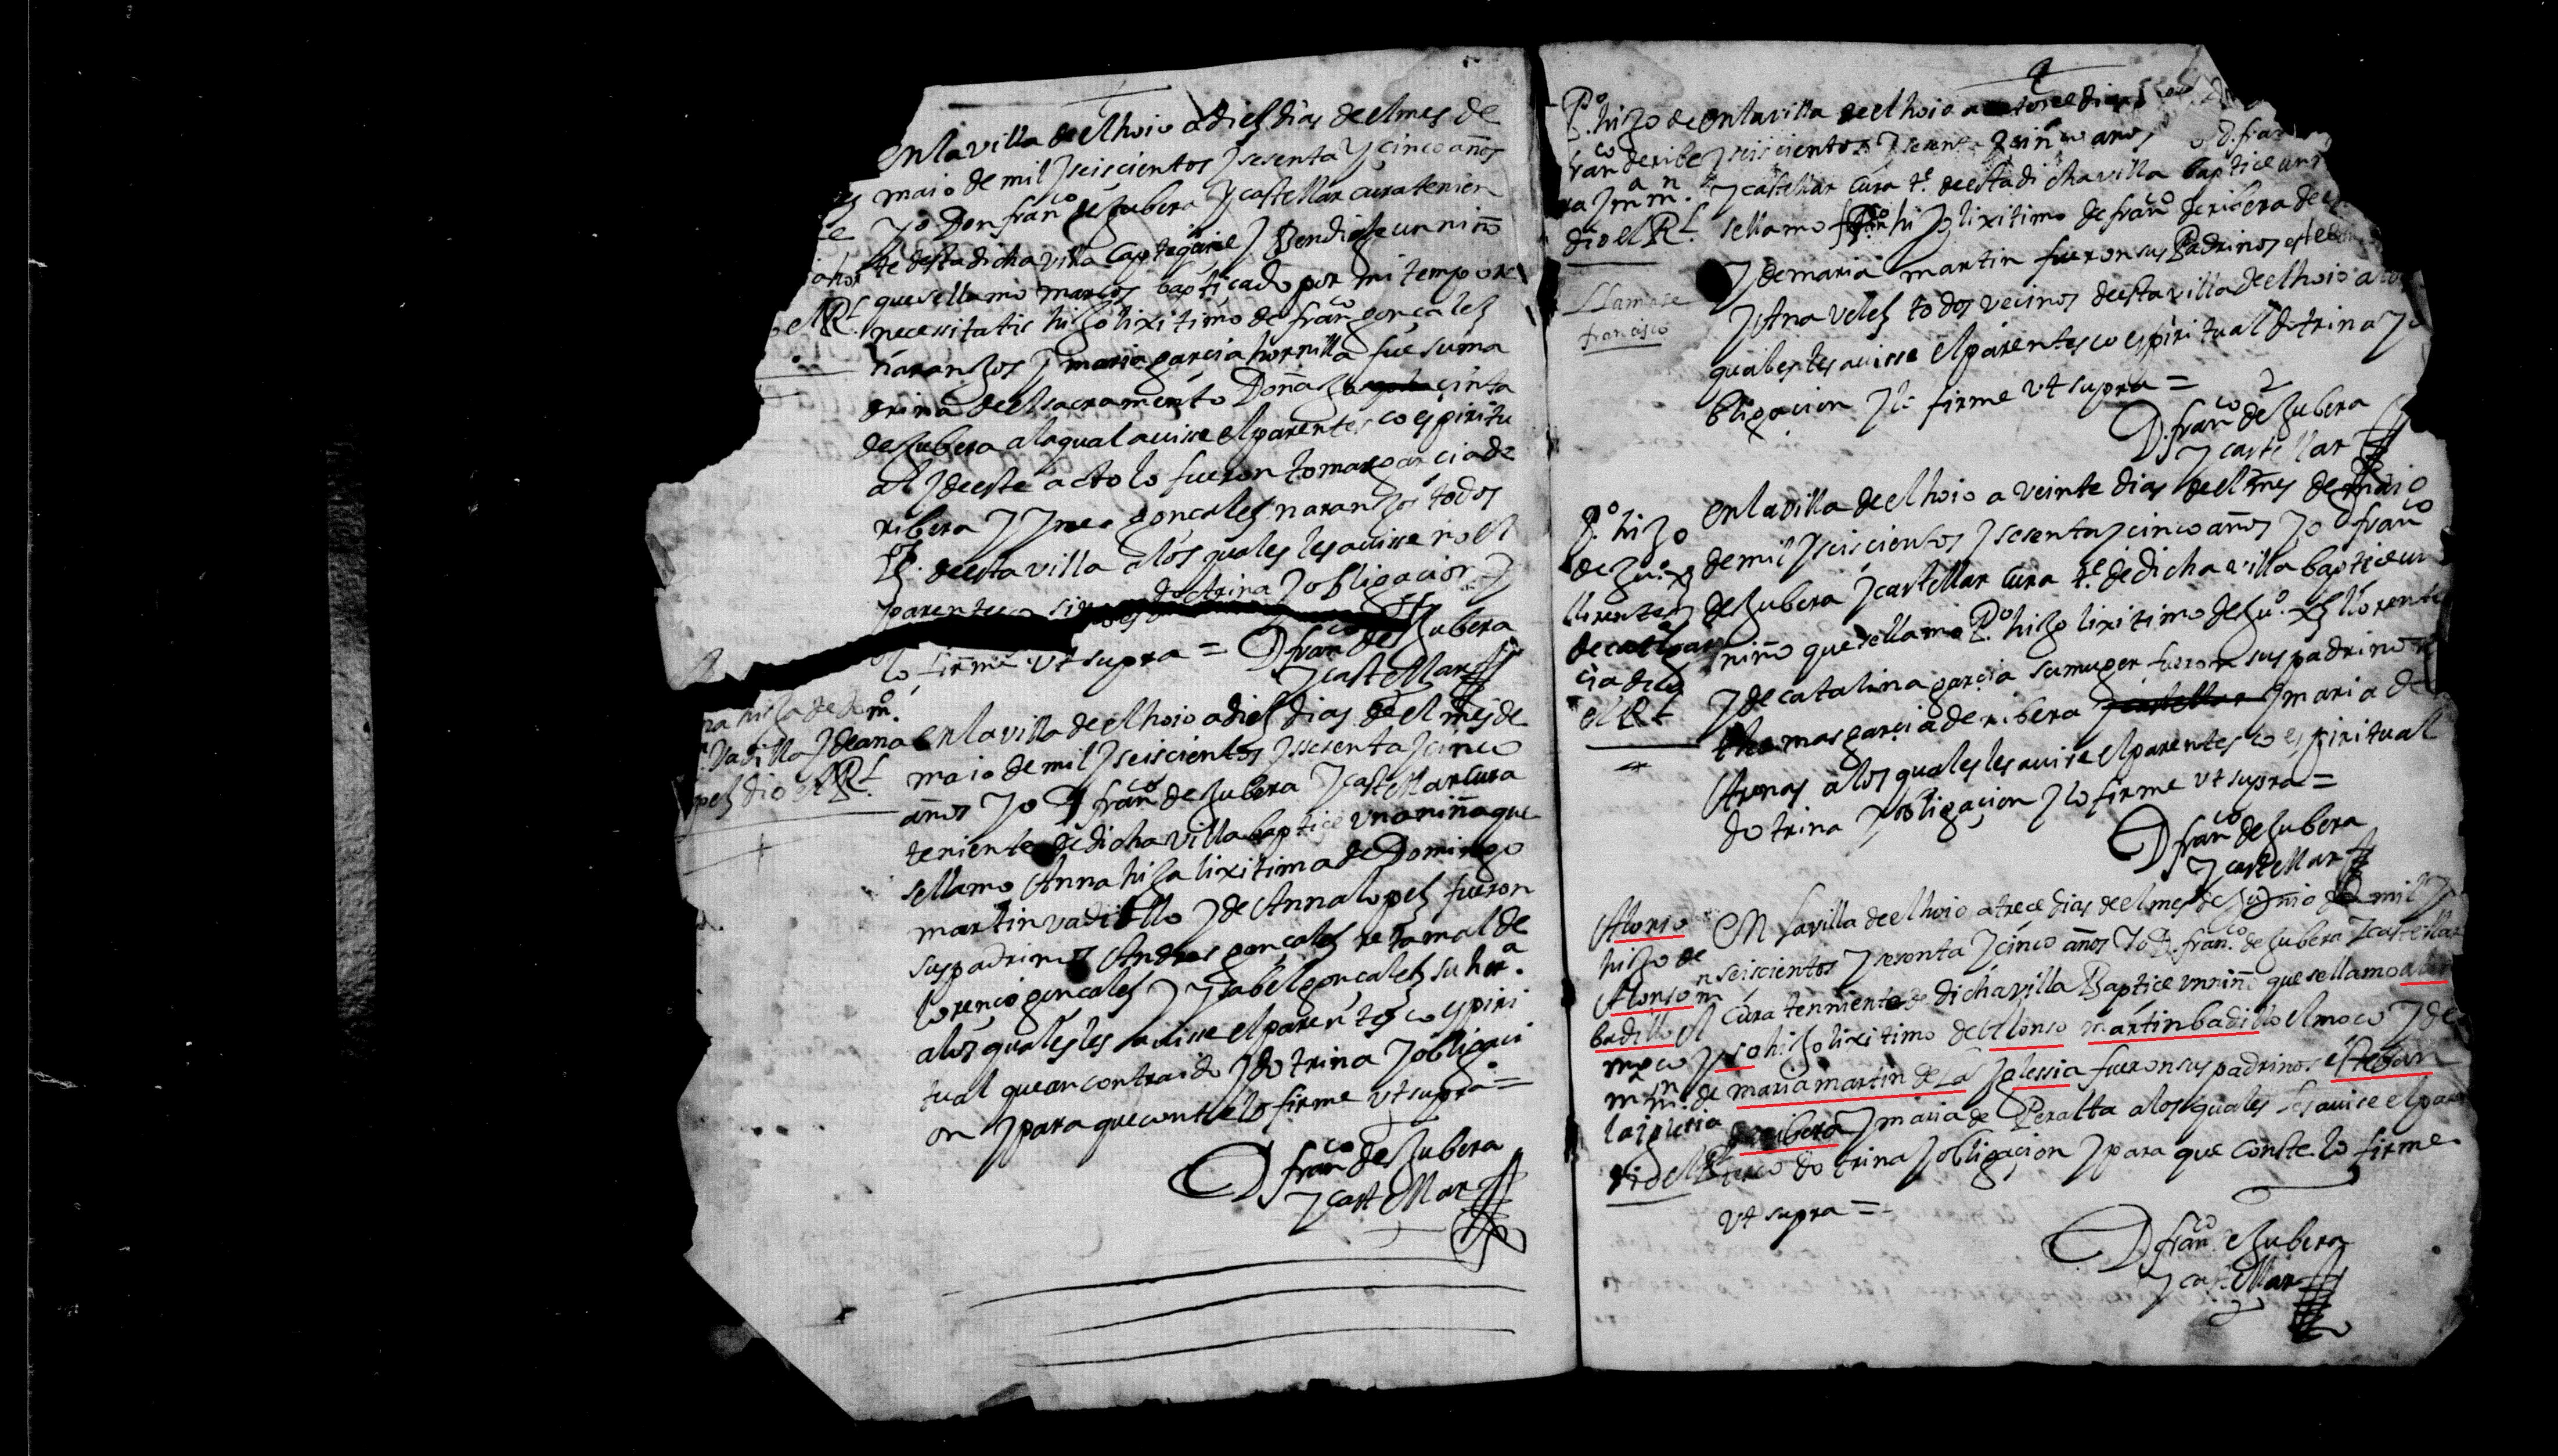 en la villa de el hoio a diez dias de el mes de
maio de mil y seiscientos y sesenta y cinco años
yo Don fran.co de Zubera y castellar cura tenien
te desta dicha villa y Bendige un niño
que se llamo marcos bapticado por mi tempore
necessitatis hijo lixitimo de fran.co gonçalez
naranjos y maria garcia hornilla fue su ma
drina de el sacramento Doña çinta
de Zubera a la qual avisse el parentesco espiritu
al y de este acto lo fueron tomas garcia de
ribera y gonçalez naranjo todos
de esta villa a los quales les avisse no el
parentesco sino doctrina y obligacion y
lo firme ut supra = D fran.co de Zubera
y castellar
a hor
el R.l
na hija de do.m.o
Vadillo y de ana
pez dio el R.l
en la villa de el hoio a diez dias de el mes de
maio de mil y seiscientos y sesenta y cinco
años yo D fran.co de Zubera y castellar cura
teniente de dicha villa baptice una niña que
se llamo Anna hija lixitima de Domingo
martin vadillo y de Anna lopez fueron
sus padrinos Andres gonçalez retamal de
lorenço gonçalez y ysabel gonçalez su her.a
a los quales les avisse el parentesco espiri
tual que an contraido y dotrina y obligaci
on y para que conste lo firme ut supra =
D fran.co de Zubera
y castellar
P.o hijo de
fran.co de ribe
ra y m.a m.n
dio el R.l
Llamase
francisco
en la villa de el hoio a dias
y seiscientos y sesenta y cinco años D. fran
y castellar cura t.e de esta dicha villa baptice un
se llamo hijo lixitimo de fran.co de ribera de
y de maria martin fueron sus Padrinos esteban
y Ana velez todos vecinos de esta villa de el hoio a los
quales les avisse el parentesco espiritual dotrina y o
bligacion y lo firme ut supra =
D. fran.co de Zubera
y castellar
P.o hijo
de Ju.o
llorente y
de cat.a gar
cia dio
el R.l
en la villa de el hoio a veinte dias de el mes de maio
de mil y seiscientos y sesenta y cinco años yo D fran.co
de Zubera y castellar cura t.e de dicha villa baptice un
niño que se llamo P.o hijo lixitimo de Ju.o llorente
y de catalina garcia su muger fueron sus padrinos
thomas garcia de ribera y castellar y maria de
Arenas a los quales les avise el parentesco espiritual
dotrina y obligaçion y lo firme ut supra =
D fran.co de Zubera
y castellar
Alonso
hijo de
Alonso m.n
badillo el
moço y
m.a m.n de
la iglesia
dio el R.l
En la villa de el hoio a trece dias de el mes de Junio de mil y
seiscientos y sesenta y cinco años Yo D. fran.co de Zubera y castellar
cura tenniente de dicha villa Baptice un niño que se llamo alon
so hijo lixitimo de Alonso martin badillo el moco y de
maria martin de La Yglessia fueron sus padrinos esteban
de ribera y maria de Peralta a los quales les avise el paren
tesco dotrina y obligaçion y para que conste lo firme
ut supra =
D fran.co de Zubera
y castellar